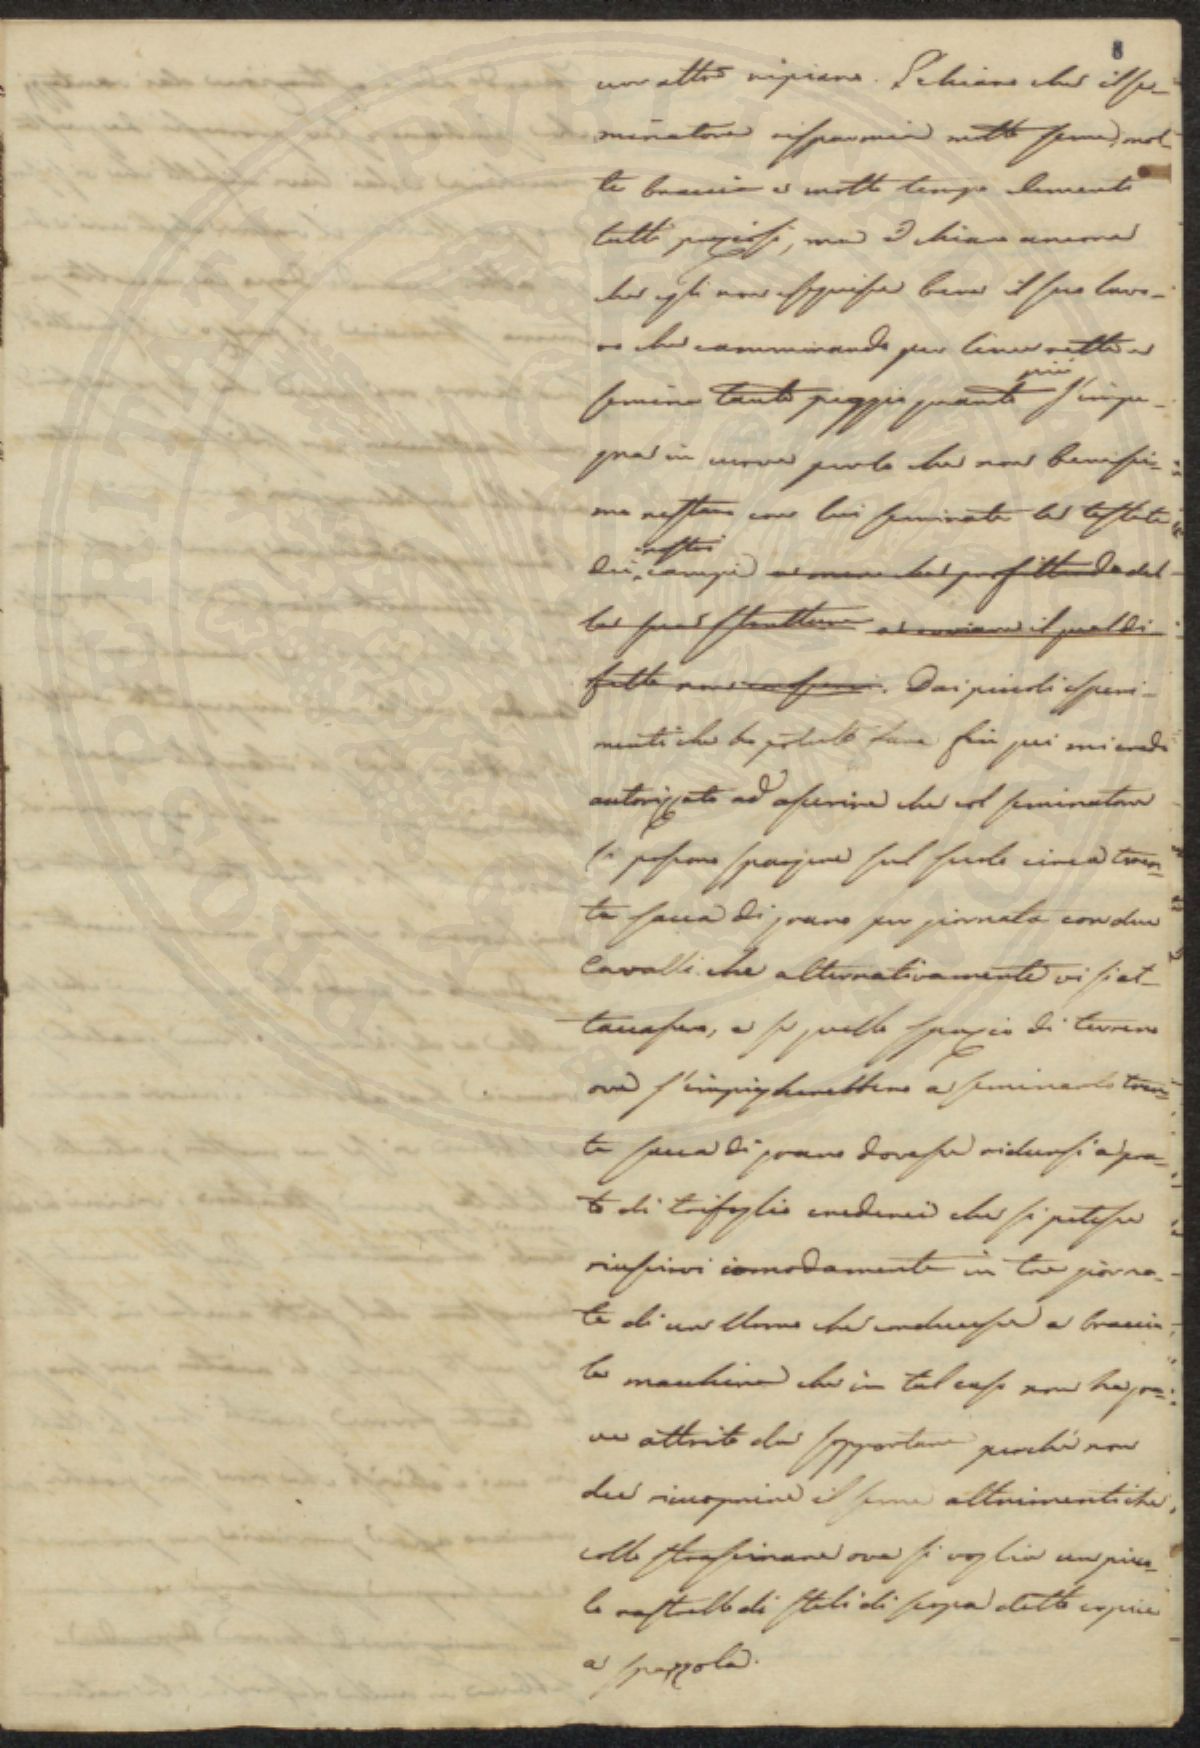 8
un altro ripiano. È chiaro che il se-
minatore risparmia molto seme, mol-
te braccia e molto tempo elementi
tutti preziosi, ma è chiaro ancora
che egli non eseguisce bene il suo lavo-
ro che camminando per linee rette e
semina tanto peggio quanto più s'impe-
gna in curve perlochè non benissi-
mo restano con lui seminate le testate
dei nostri campi a meno che profittando del
la sua struttura a ovviare il qual di-
fetto non si pensi. Dai piccoli esperi-
menti che ho potuto fare fin qui mi credo
autorizzato ad asserire che col seminatore
si possono spargere sul suolo circa tren-
ta sacca di grano per giornata con due
Cavalli che alternativamente vi si at-
taccassero, e se quello spazio di terreno
ove s'impiegherebbero a seminarlo tren-
ta sacca di grano dovesse ridursi a pra-
to di trifoglio crederei che si potesse
riuscirvi comodamente in tre giorna-
te di un Uomo che conducesse a braccia
la macchina che in tal caso non ha gra-
ve attrito da sopportare perchè non
dee ricuoprire il seme altrimenti che
collo strascinare ove si voglia un picco-
lo rastrello di steli di scopa detto
a spazzola.